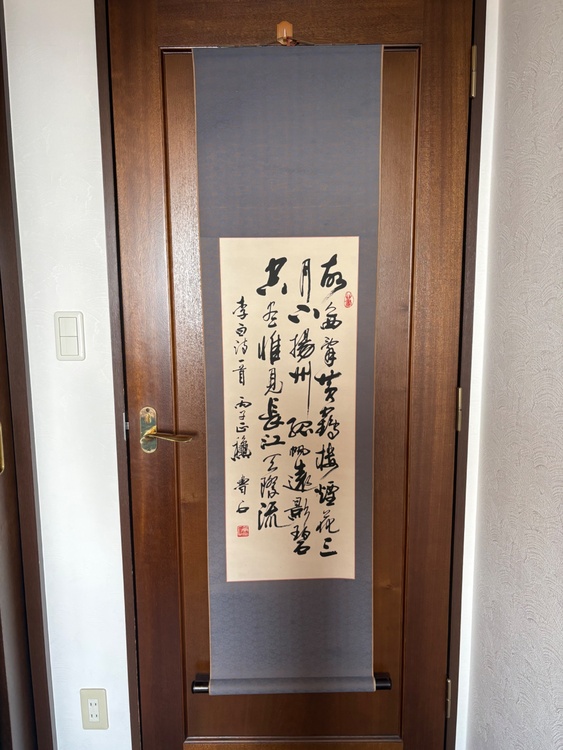 故人西辞黄鶴樓煙花三
月下揚州孤帆遠影碧
空尽惟見長江天際流
李白詩一首 丙子正 石